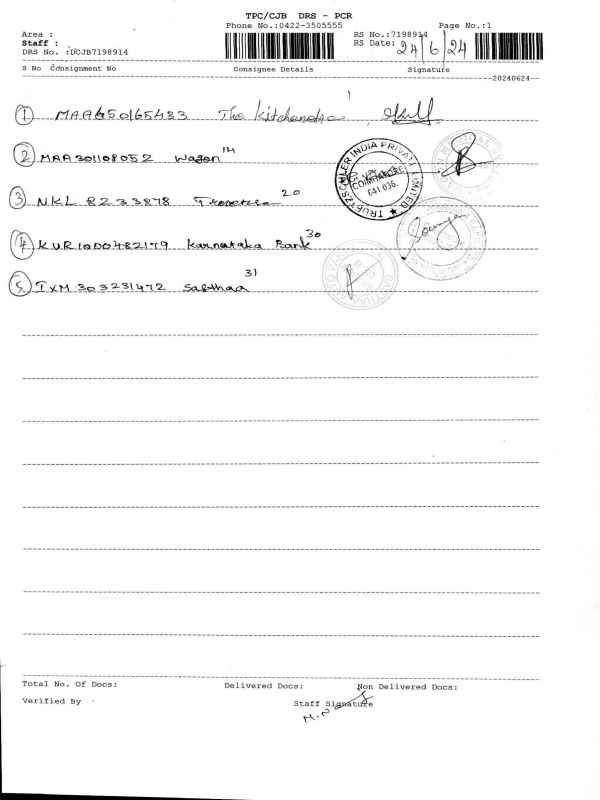 TPC/CJB DRS - PCR
Phone No.:0422-3505555 Page No.:1
Area : RS No.:7198914
Staff : RS Date: 24/6/24
DRS No. :DCJB7198914
S No Consignment No Consignee Details Signature
20240624
1 MAA650165433 The Kitchendra 1
2 MAA301108052 Wagon 14
3 NKL RZ33878 20
4 KVR1000482179 Karnataka Bank 30
5 TXM 303231472 Sasthaa 31
TRUETZSCHLER INDIA PRIVATE LIMITED
COIMBATORE
641 036.
Sowmya
Total No. Of Docs: Delivered Docs: Non Delivered Docs:
Verified By Staff Signature